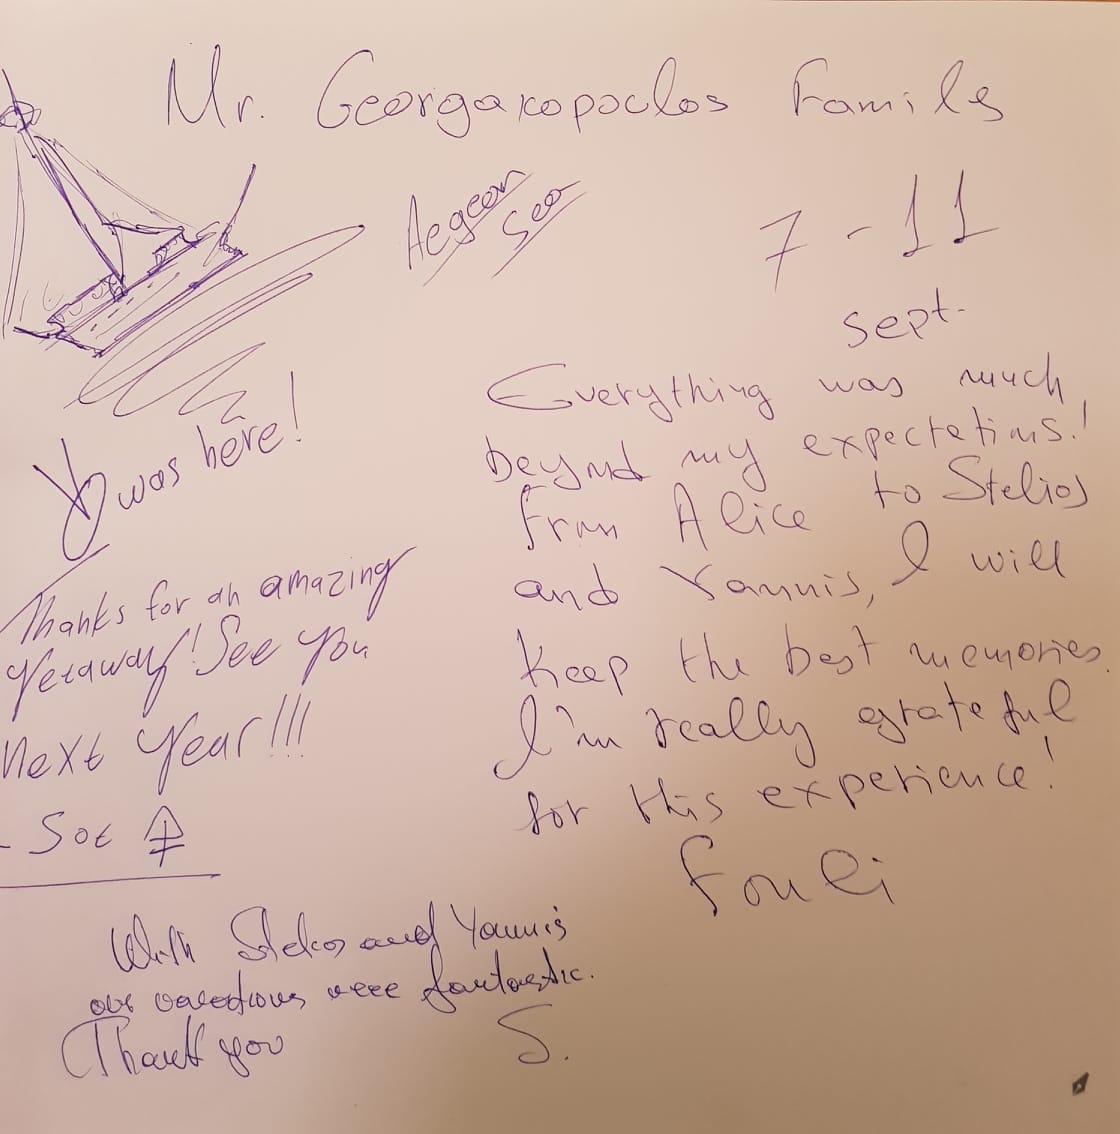 Mr. Georgakopoulos Family
Aegean
Sea
7 - 11
sept.
was here!
Thanks for an amazing
getaway! See you
next year!!!
- Sot
Everything was much
beyond my expectations!
From Alice to Stelios
and Yannis, I will
keep the best memories.
I'm really grateful
for this experience!
Fouli
With Stelios and Yannis
our vacations were fantastic.
Thank you
S.